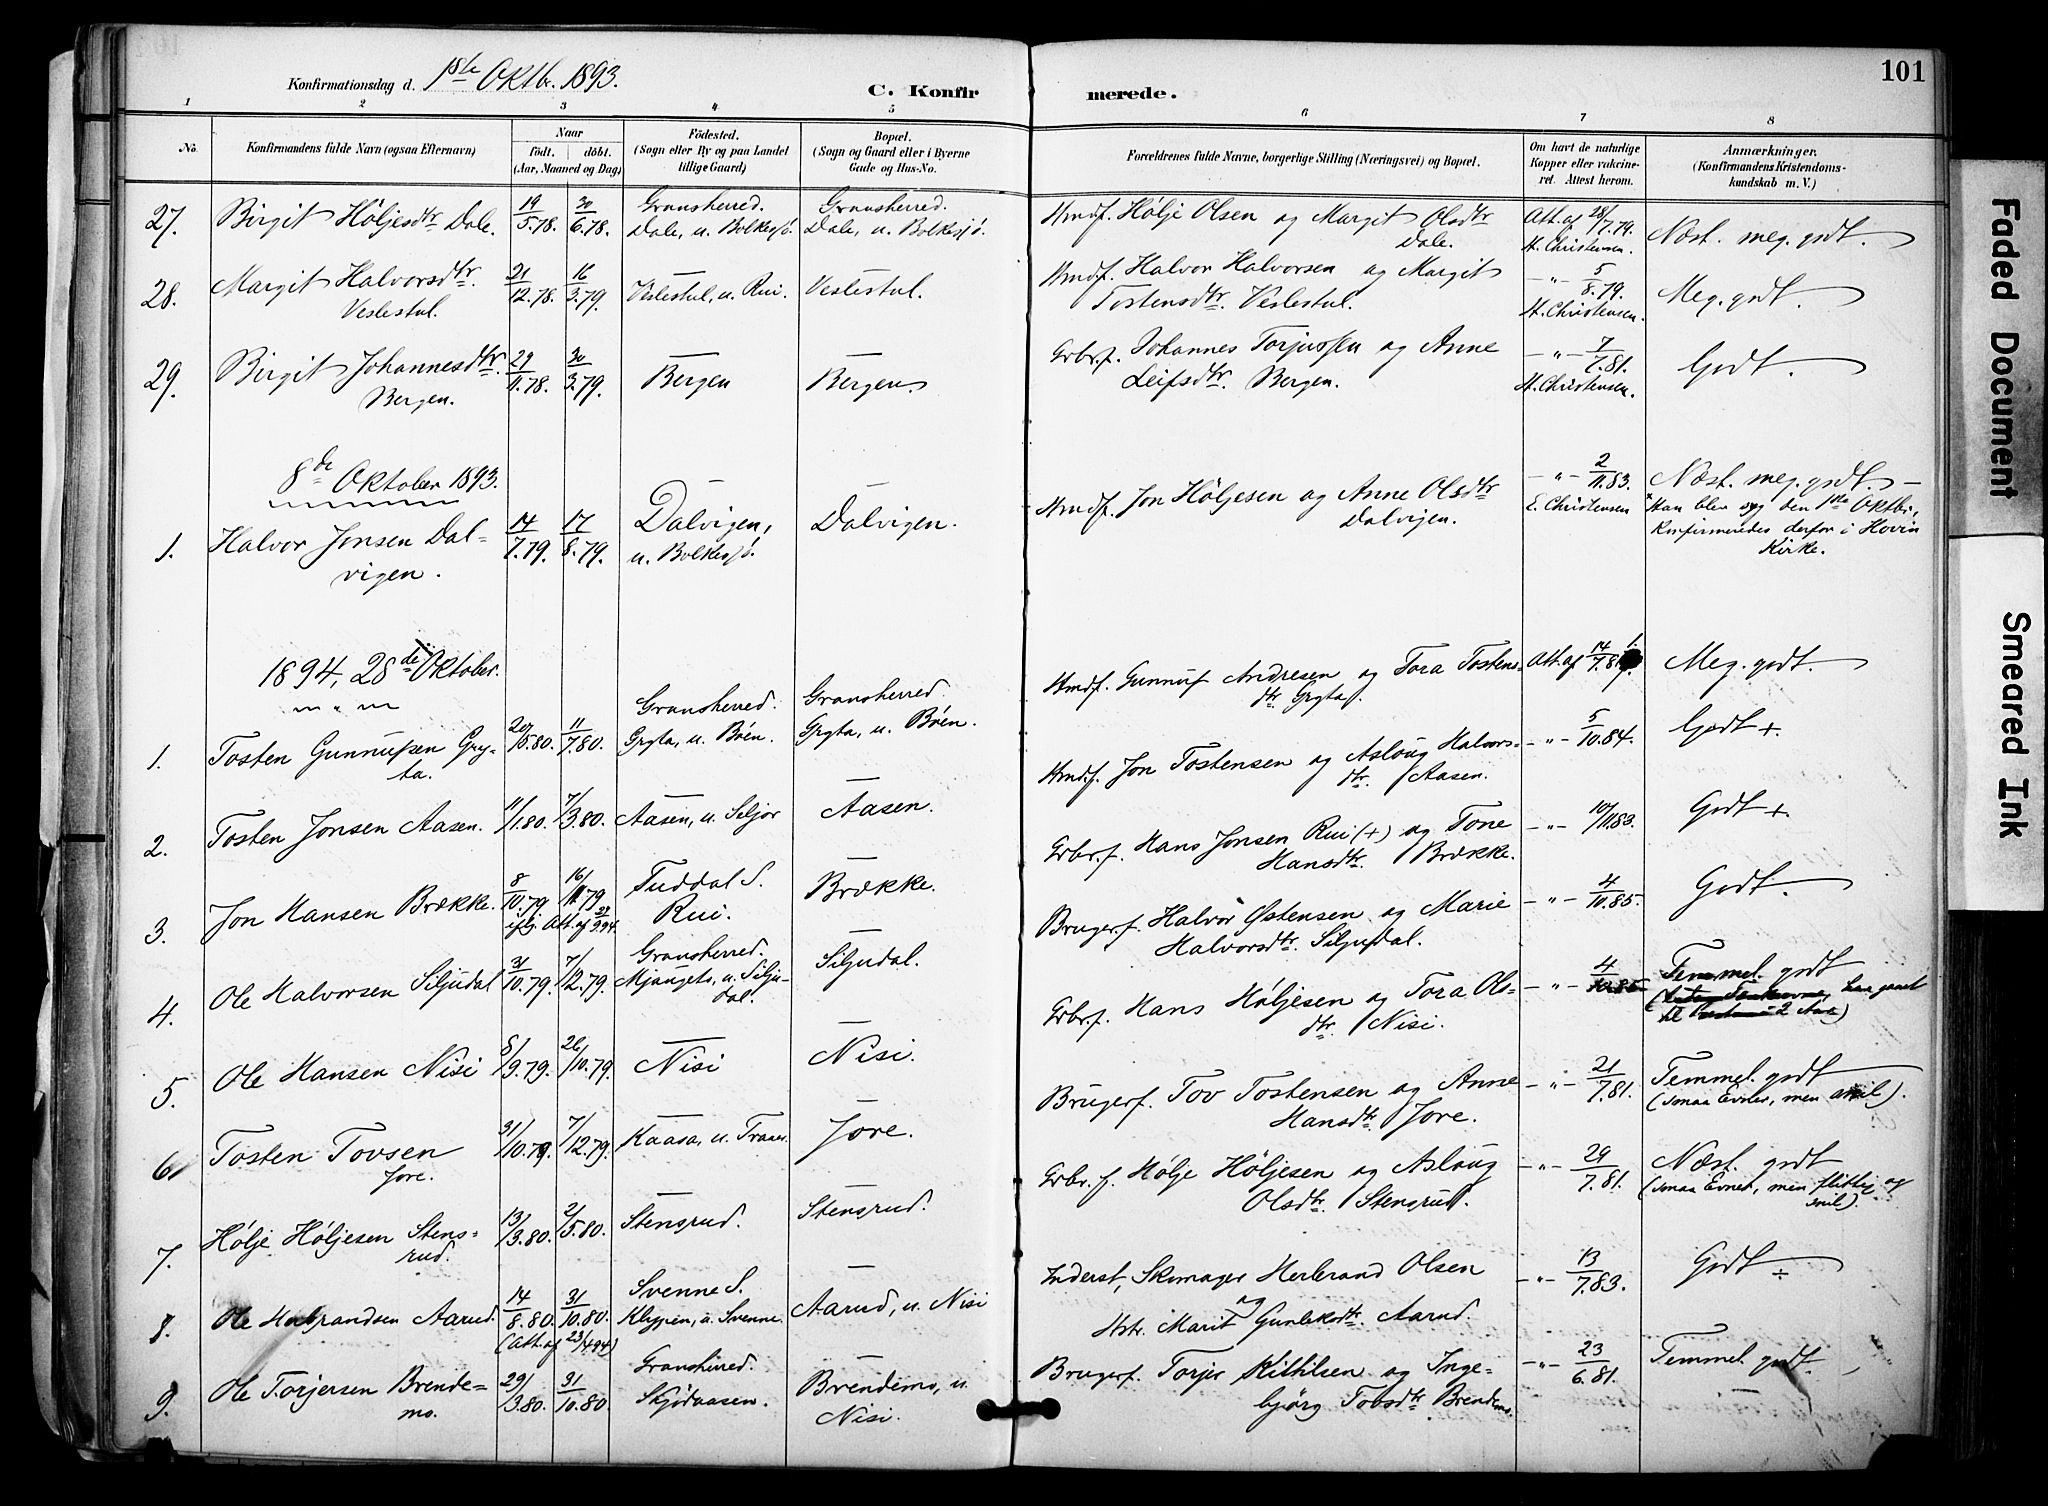 101
Konfirmationsdag d. 1ste Oktbr. 1893.
C. Konfirmerede.
1 2 3 4 5 6 7 8
No.
Konfirmandens fulde Navn (ogsaa Efternavn)
Naar
født, döbt.
(Aar, Maaned og Dag)
Födested.
(Sogn eller By og paa Landet
tillige Gaard)
Bopæl.
(Sogn og Gaard eller i Byerne
Gade og Hus-No.
Forældrenes fulde Navne, borgerlige Stilling (Næringsvei) og Bopæl.
Om havt de naturlige
Kopper eller vakcine-
ret. Attest herom.
Anmærkninger.
(Konfirmandens Kristendoms-
kundskab m. V.)
27. Birgit Höljesdtr Dale. 19/5.78. 30/6.78. Gransherred. Dale, u. Bolkesjø. Gransherred. Dale, u. Bolkesjø. Hmdf. Hølje Olsen og Margit Olsdtr Dale. Att. af 28/7.79. H. Christensen Næst. meg. godt.
28. Margit Halvorsdtr. Veslestul. 21/12.78. 16/3.79. Veslestul, u. Rui. Veslestul. Hmdf. Halvor Halvorsen og Margit Tostensdtr. Veslestul. -"- 5/8.79. H. Christensen. Meg. godt.
29. Birgit Johannesdtr. Bergen. 29/11.78. 30/3.79. Bergen Bergen Grbr.f. Johannes Torjussen og Anne Leifsdtr. Bergen. -"- 7/7.81. H. Christensen. Godt.
8de Oktober 1893.
1. Halvor Jonsen Dal-
vigen. 14/7.79. 17/8.79. Dalvigen, u. Bolkesjø. Dalvigen. Hmdf. Jon Höljesen og Anne Olsdtr Dalvigen. -"- 2/11.83. E. Christensen Næst. meg. godt. -
Han blev syg den 1ste Oktbr.,
konfirmeredes derfor i Hovin
Kirke.
1894, 28de Oktober.
1. Tosten Gunnufsen Gry-
ta. 20/5.80. 11/7.80. Gransherred. Gryta, u. Bøen. Gransherred. Gryta, u. Bøen. Hmdf. Gunnuf Andresen og Tora Tostens-
dtr Gryta. Att. af 14/7.81. Meg. godt.
2. Tosten Jonsen Aasen. 11/1.80. 7/3.80. Aasen, u. Siljor Aasen. Hmd.f. Jon Tostensen og Asloug Halvors-
dtr. Aasen. -"- 5/10.84. Godt +.
3. Jon Hansen Brække. 8/10.79 16/11.79 iflg. Att. af 94. Tuddal S. Rui. Brække. Grbr.f. Hans Jonsen Rui (+) og Tone Hansdtr. Brække. -"- 10/11.83. Godt +.
4. Ole Halvorsen Siljudal 31/10.79. 7/12.79. Gransherred. Mjaugets, u. Silju-
dal. Siljudal. Bruger f. Halvor Østensen og Marie Halvorsdtr. Siljudal. -"- 4/10.85. Godt.
5. Ole Hansen Nisi 8/9.79. 26/10.79. Nisi Nisi. Grbr.f. Hans Höljesen og Tora Ols-
dtr. Nisi. -"- 4/10.85. Temmel. godt
har gaaet til 2 Aar)
6. Tosten Tovsen Jore. 31/10.79 7/12.79. Kaasa, u. Traaer. Jore. Brugerf. Tov Tostensen og Anne Hansdtr. Jore. -"- 21/7.81. Temmel. godt
(smaa Evner, men snil).
7. Hølje Höljesen Stens-
rud. 13/3.80. 2/5.80. Stensrud. Stensrud. Grbr. f. Hølje Höljesen og Asloug Olsdtr. Stensrud. -"- 29/7.81. Næst. godt
(smaa Evner, men flittig og
snil).
8. Ole Halbrandsen Aarud. 14/8.80. 31/10.80. (Att. af 23/4 94) Svenne S. Klyppen, u. Svenne. Aarud, u. Nisi Inderst, Skomager Herbrand Olsen og Hstr. Marit Gunleksdtr. Aarud. -"- 13/7.83. Godt ÷
9. Ole Torjersen Brende-
mo. 29/3.80. 31/10.80. Gransherred. Skjødaasen. Brendemo, u. Nisi. Brugerf. Torjer Kittilsen og Inge-
bjørg Tovsdtr Brendemo. -"- 23/6.81. Temmel. godt.
Faded Document
Smeared Ink